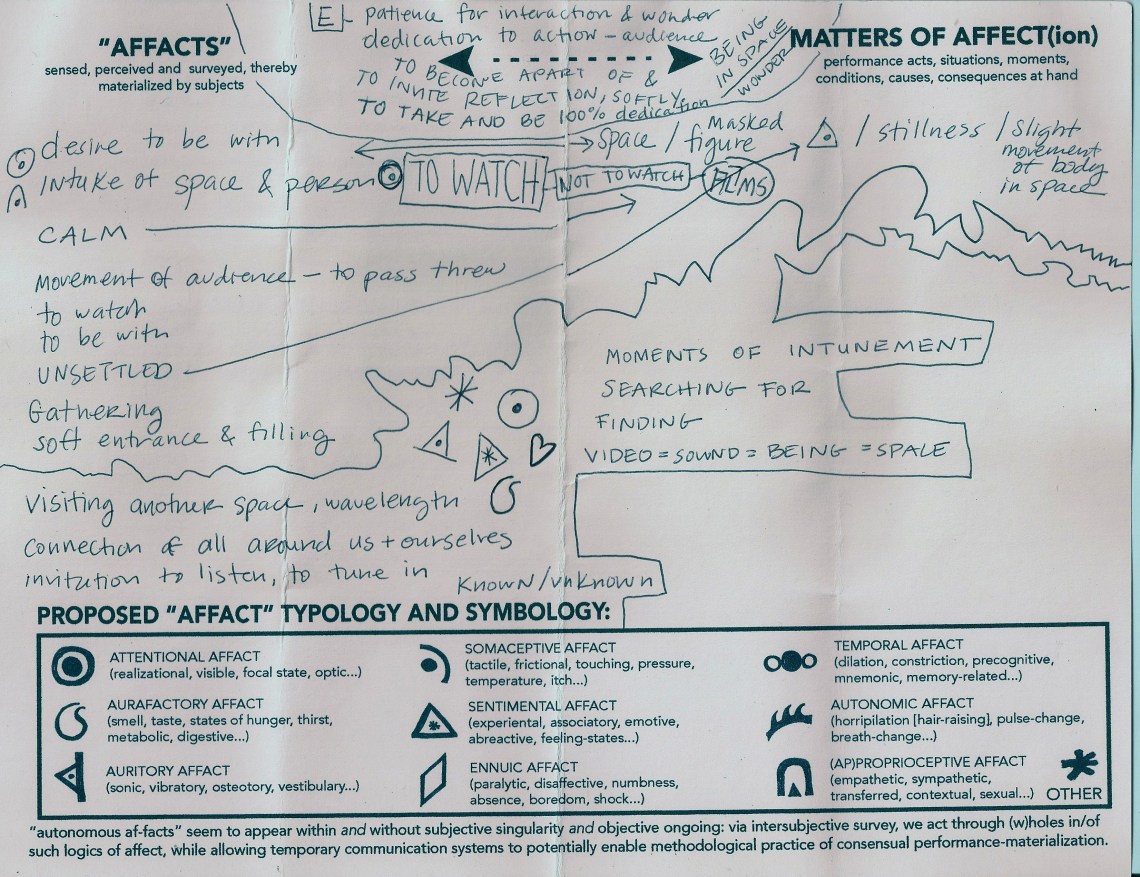 [E] - patience for interaction & wonder
dedication to action - audience
TO BECOME APART OF &
TO INVITE REFLECTION, SOFTLY,
TO TAKE AND BE 100% dedication
BEING
IN SPACE
WONDER
"AFFACTS"
sensed, perceived and surveyed, thereby
materialized by subjects
MATTERS OF AFFECT(ion)
performance acts, situations, moments,
conditions, causes, consequences at hand
desire to be with
Intake of space & person
TO WATCH
NOT TO WATCH
FILMS
space / masked figure
/ stillness / slight
movement
of body
in space
CALM
movement of audience - to pass threw
to watch
to be with
UNSETTLED
Gathering
soft entrance & filling
MOMENTS OF INTUNEMENT
SEARCHING FOR
FINDING
VIDEO = SOUND = BEING = SPACE
Visiting another space, wavelength
Connection of all around us + ourselves
invitation to listen, to tune in
Known/unknown
PROPOSED "AFFACT" TYPOLOGY AND SYMBOLOGY:
ATTENTIONAL AFFACT
(realizational, visible, focal state, optic...)
AURAFACTORY AFFACT
(smell, taste, states of hunger, thirst,
metabolic, digestive...)
AURITORY AFFACT
(sonic, vibratory, osteotory, vestibulary...)
SOMACEPTIVE AFFACT
(tactile, frictional, touching, pressure,
temperature, itch...)
SENTIMENTAL AFFACT
(experiental, associatory, emotive,
abreactive, feeling-states...)
ENNUIC AFFACT
(paralytic, disaffective, numbness,
absence, boredom, shock...)
TEMPORAL AFFACT
(dilation, constriction, precognitive,
mnemonic, memory-related...)
AUTONOMIC AFFACT
(horripilation [hair-raising], pulse-change,
breath-change...)
(AP)PROPRIOCEPTIVE AFFACT
(empathetic, sympathetic,
transferred, contextual, sexual...)
OTHER
"autonomous af-facts" seem to appear within and without subjective singularity and objective ongoing: via intersubjective survey, we act through (w)holes in/of
such logics of affect, while allowing temporary communication systems to potentially enable methodological practice of consensual performance-materialization.